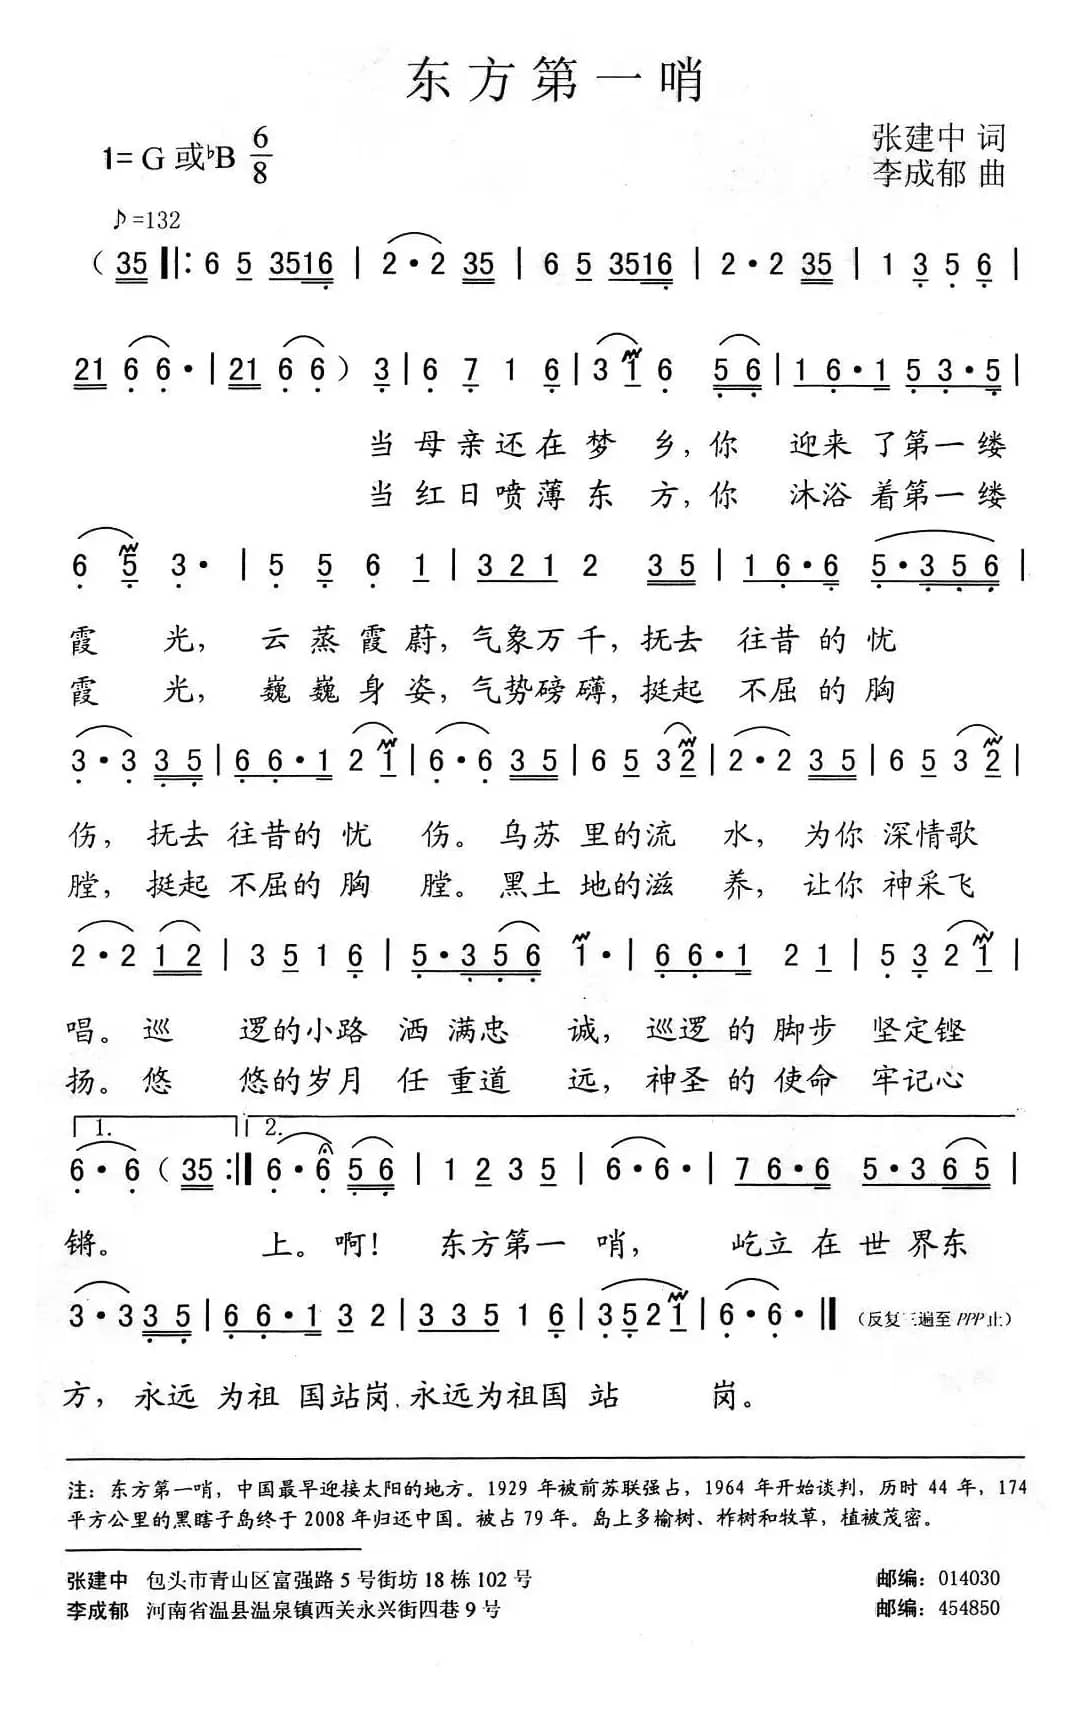 东方第一哨
1=G或♭B 6/8
张建中 词
李成郁 曲
♪=132
(35 ‖: 6 5 3516 | 2·2 35 | 6 5 3516 | 2·2 35 | 1 3 5 6 |
21 6 6· | 21 6 6) 3 | 6 7 1 6 | 3 1 6 56 | 1 6·1 5 3·5 |
当母亲还在梦 乡,你 迎来了第一缕
当红日喷薄东 方,你 沐浴着第一缕
6 5 3· | 5 5 6 1 | 321 2 35 | 1 6·6 5·356 |
霞 光, 云蒸霞蔚,气象万千,抚去 往昔的忧
霞 光, 巍巍身姿,气势磅礴,挺起 不屈的胸
3·3 35 | 6 6·1 2 1 | 6·6 35 | 6 5 3 2 | 2·2 35 | 6 5 3 2 |
伤, 抚去 往昔的忧 伤。乌苏 里的流 水, 为你 深情歌
膛, 挺起 不屈的胸 膛。黑土 地的滋 养, 让你 神采飞
2·2 12 | 3 5 1 6 | 5·356 1· | 6 6·1 2 1 | 5 3 2 1 |
唱。巡 逻的小路 洒满忠 诚, 巡逻的脚步 坚定铿
扬。悠 悠的岁月 任重道 远, 神圣的使命 牢记心
1. 2.
6·6 (35 :‖ 6·6 56 | 1 2 3 5 | 6·6· | 7 6·6 5·3 65 |
锵。 上。啊! 东方第一 哨, 屹立在世界东
3·3 35 | 6 6·1 3 2 | 335 1 6 | 3 5 2 1 | 6·6· ‖ (反复三遍至PPP止)
方, 永远 为祖 国站岗,永远为祖国 站 岗。
注:东方第一哨,中国最早迎接太阳的地方。1929 年被前苏联强占,1964 年开始谈判,历时 44 年,174
平方公里的黑瞎子岛终于 2008 年归还中国。被占 79 年。岛上多榆树、柞树和牧草,植被茂密。
张建中 包头市青山区富强路 5 号街坊 18 栋 102 号 邮编:014030
李成郁 河南省温县温泉镇西关永兴街四巷 9 号 邮编:454850